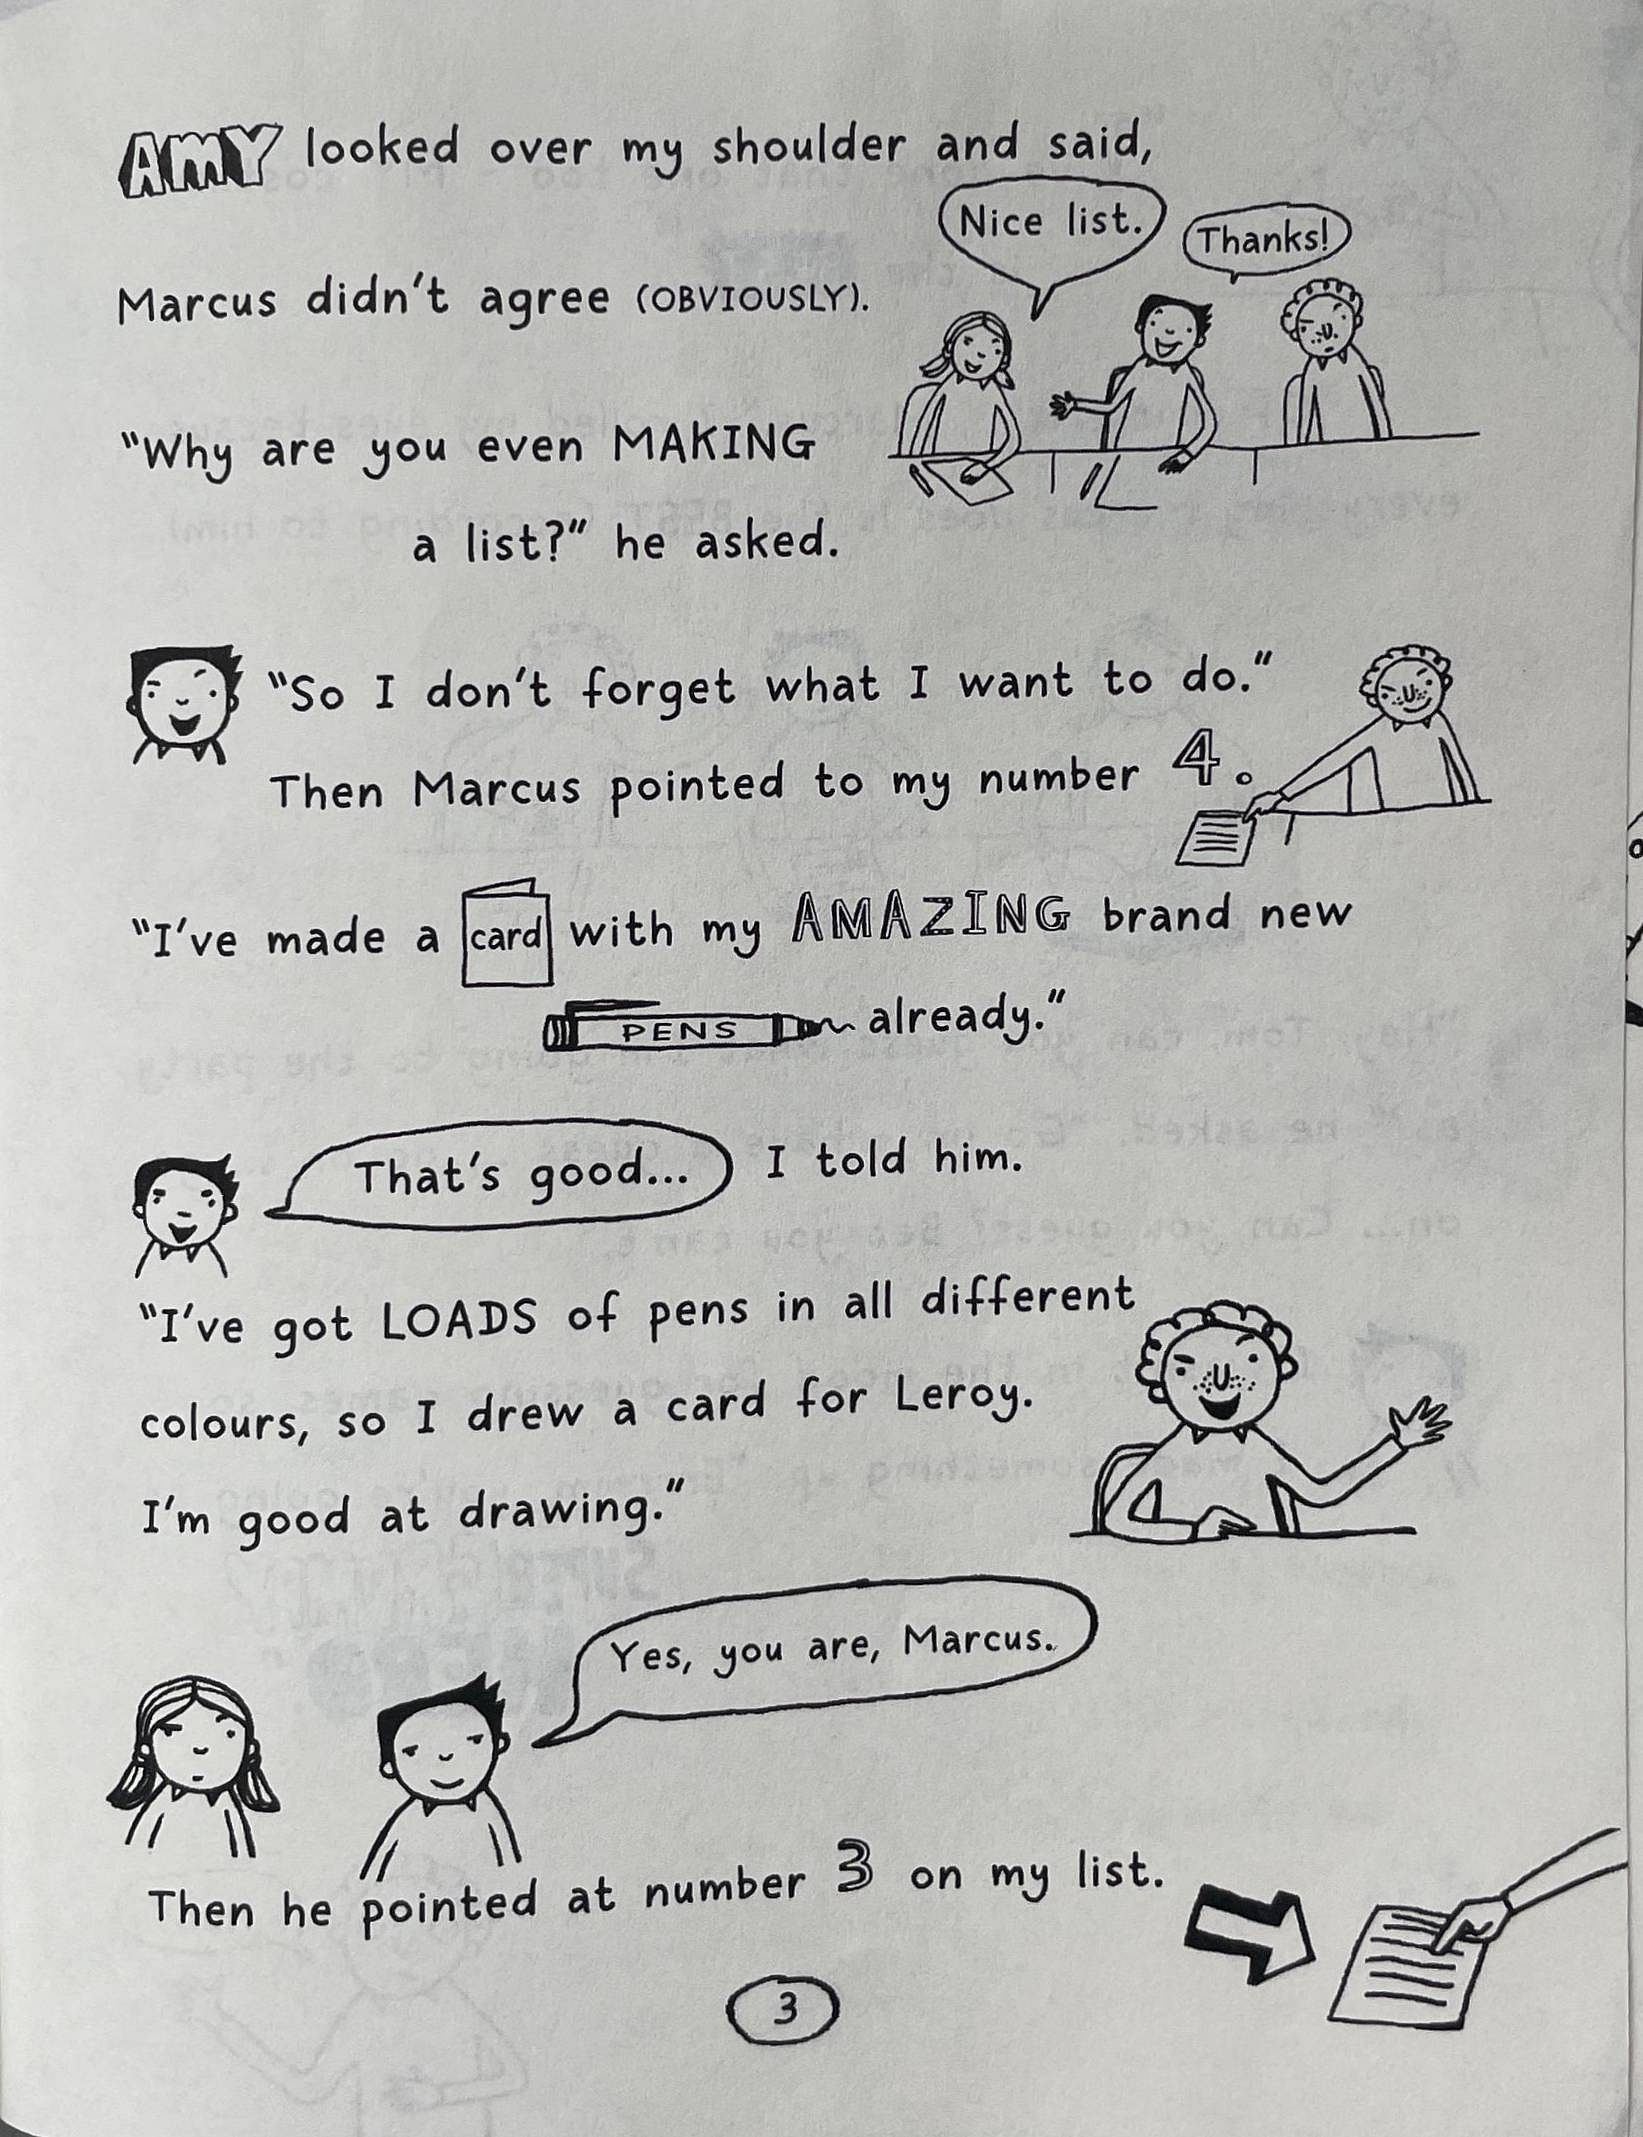 AMY looked over my shoulder and said,
Nice list.
Thanks!
Marcus didn't agree (OBVIOUSLY).
"Why are you even MAKING
a list?" he asked.
"So I don't forget what I want to do."
Then Marcus pointed to my number 4.
"I've made a card with my AMAZING brand new
PENS already."
That's good... I told him.
"I've got LOADS of pens in all different
colours, so I drew a card for Leroy.
I'm good at drawing."
Yes, you are, Marcus.
Then he pointed at number 3 on my list.
3